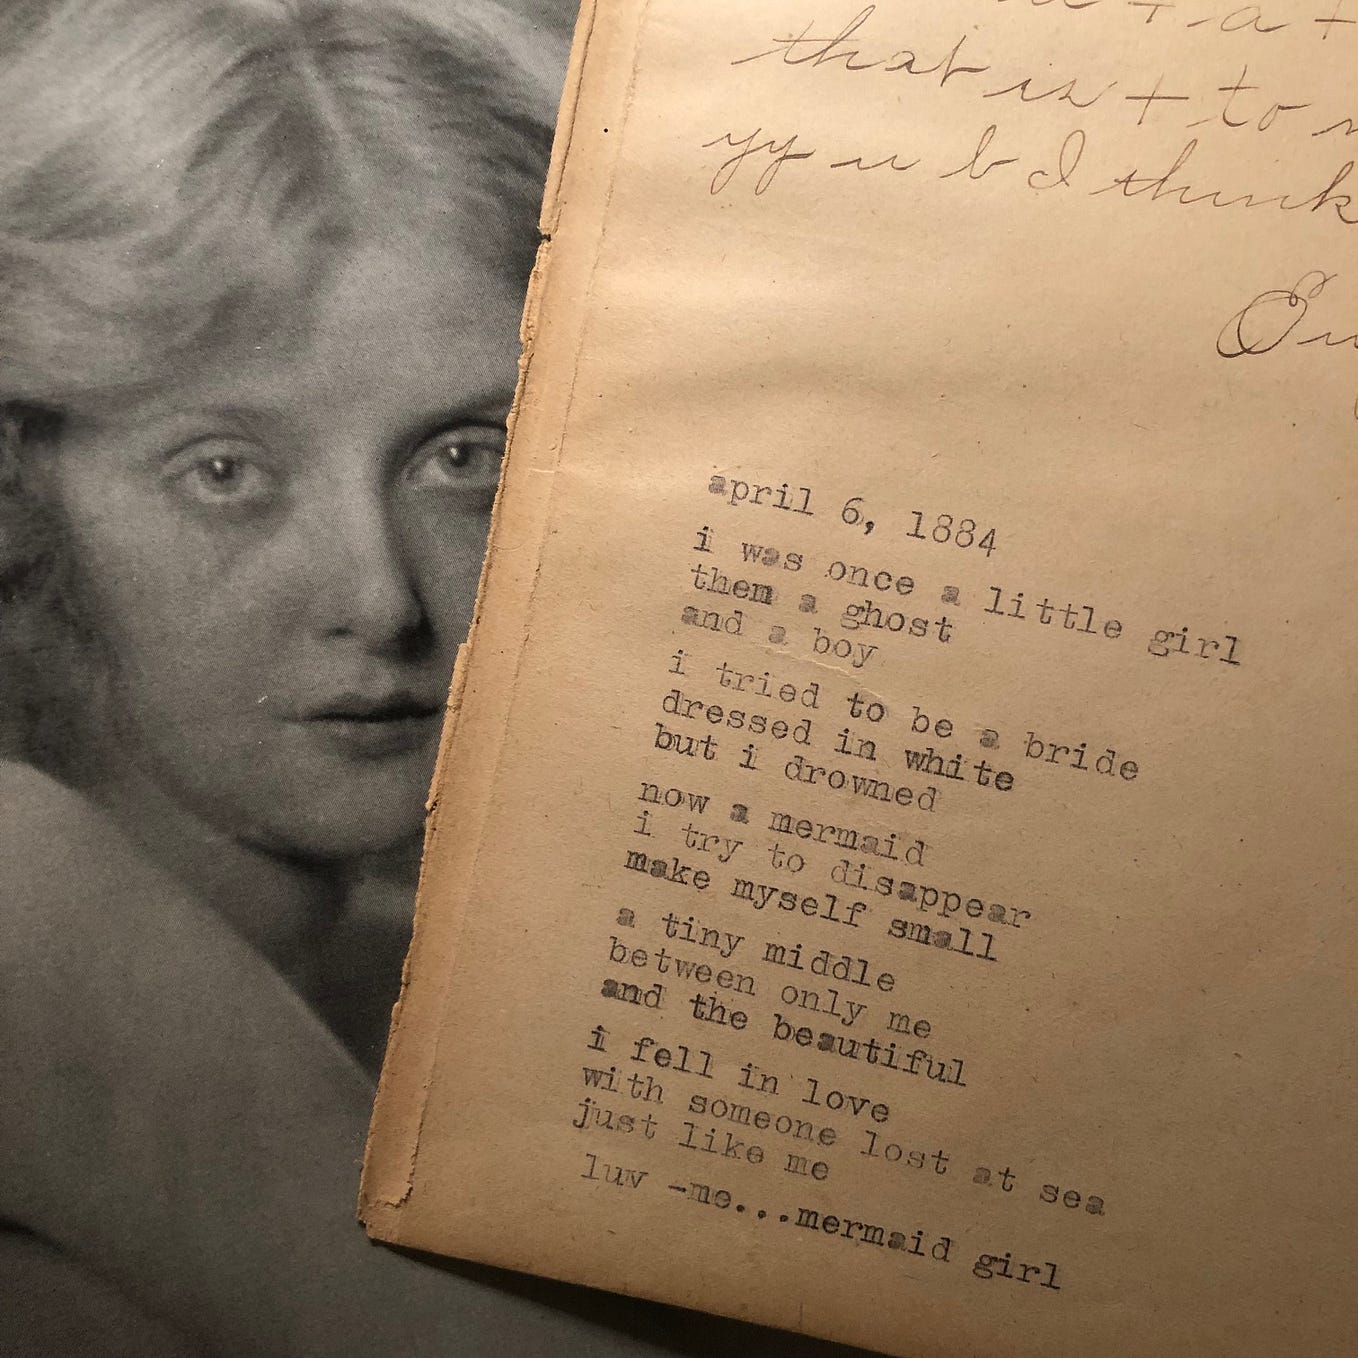 that is + to
yy u b I think
april 6, 1884
i was once a little girl
them a ghost
and a boy
i tried to be a bride
dressed in white
but i drowned
now a mermaid
i try to disappear
make myself small
a tiny middle
between only me
and the beautiful
i fell in love
with someone lost at sea
just like me
luv -me...mermaid girl